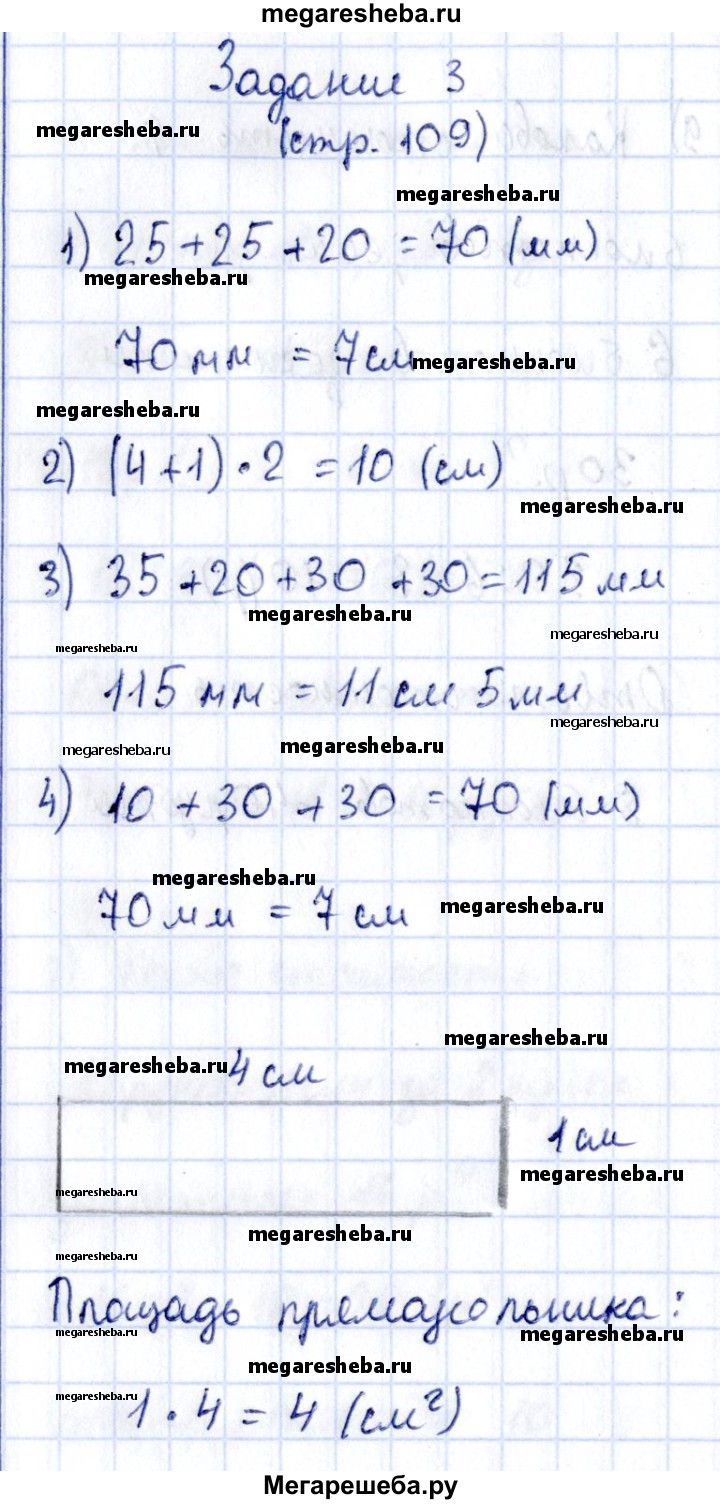 megaresheba.ru
Задание 3
megaresheba.ru
(стр. 109)
megaresheba.ru
1) 25+25+20=70 (мм)
megaresheba.ru
70 мм = 7 см
megaresheba.ru
megaresheba.ru
2) (4+1)·2=10 (см)
megaresheba.ru
3) 35+20+30+30=115 мм
megaresheba.ru
megaresheba.ru
megaresheba.ru
115 мм = 11 см 5 мм
megaresheba.ru
megaresheba.ru
megaresheba.ru
4) 10+30+30=70 (мм)
megaresheba.ru
70 мм = 7 см
megaresheba.ru
megaresheba.ru
megaresheba.ru
4 см
1 см
megaresheba.ru
megaresheba.ru
megaresheba.ru
megaresheba.ru
Площадь прямоугольника:
megaresheba.ru
megaresheba.ru
megaresheba.ru
megaresheba.ru
1·4=4 (см²)
Мегарешеба.ру